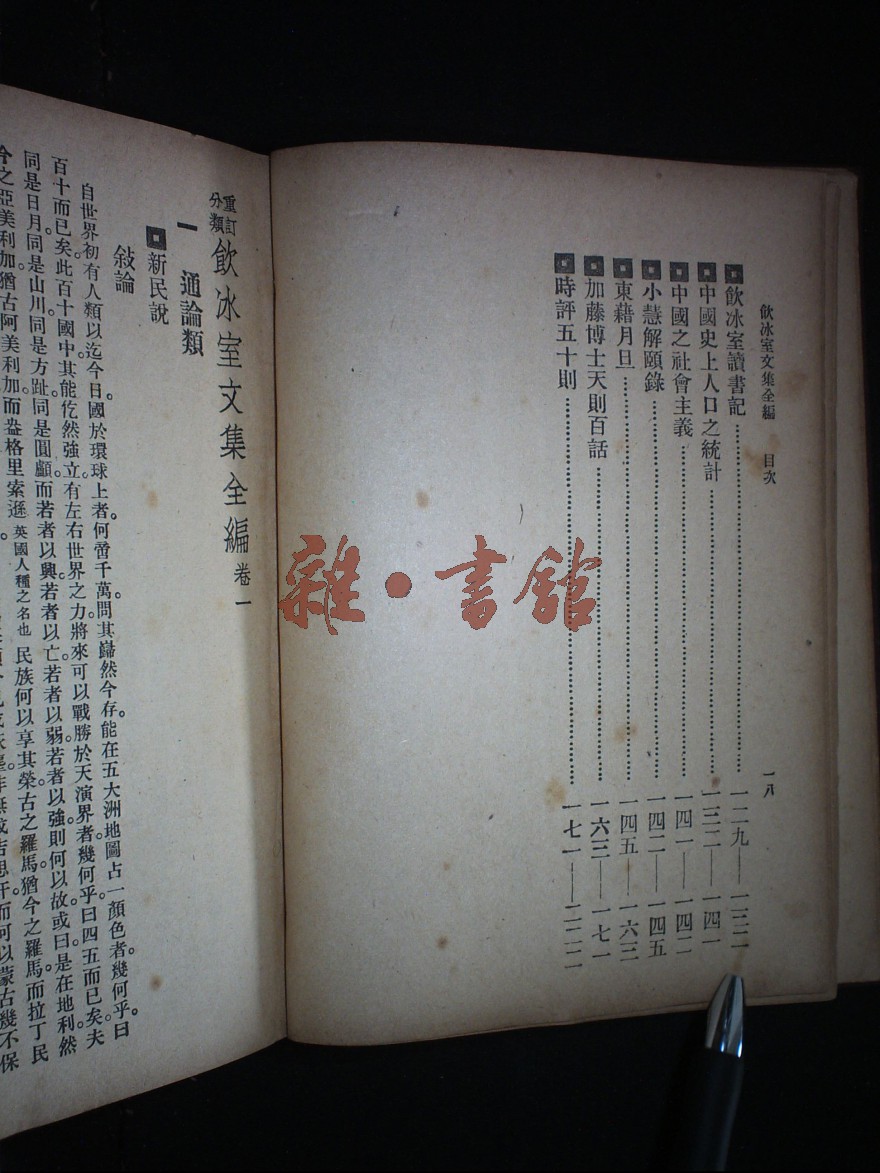 飲冰室文集全編 目次 一八
飲冰室讀書記 一二九——一三二
中國史上人口之統計 一三二——一四一
中國之社會主義 一四一——一四二
小慧解頤錄 一四二——一四五
東藉月旦 一四五——一六三
加藤博士天則百話 一六三——一七一
時評五十則 一七一——二二二
重訂分類飲冰室文集全編卷一
一 通論類
新民說
敍論
自世界初有人類以迄今日。國於環球上者何啻千萬。問其巋然今存。能在五大洲地圖占一顏色者幾何乎。曰
百十而已矣。此百十國中。其能屹然強立。有左右世界之力。將來可以戰勝於天演界者幾何乎。曰四五而已矣。夫
同是日月。同是山川。同是方趾。同是圓顱。而若者以興。若者以亡。若者以弱。若者以強。則何以故。或曰。是在地利。然
今之亞美利加。猶古阿美利加。而盎格里索遜英國人種之名也民族何以享其榮。古之羅馬。猶今之羅馬。而拉丁民
何以蒙古幾不保
雜·書館